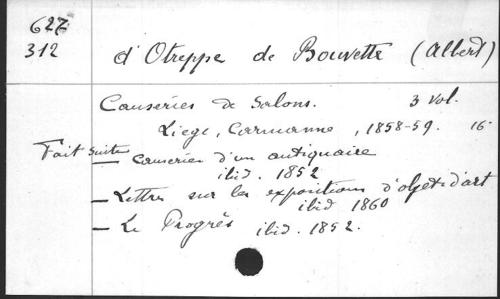 627
312
d'Otreppe de Bouvette (Albert)
Causeries de Salons. 3 vol.
Liege, Carmanne, 1858-59. 16-
Fait suite
— Causeries d'un antiquaire
ibid. 1852
— Lettres sur les expositions d'objets d'art
ibid 1860
— Le Progrès ibid. 1852.